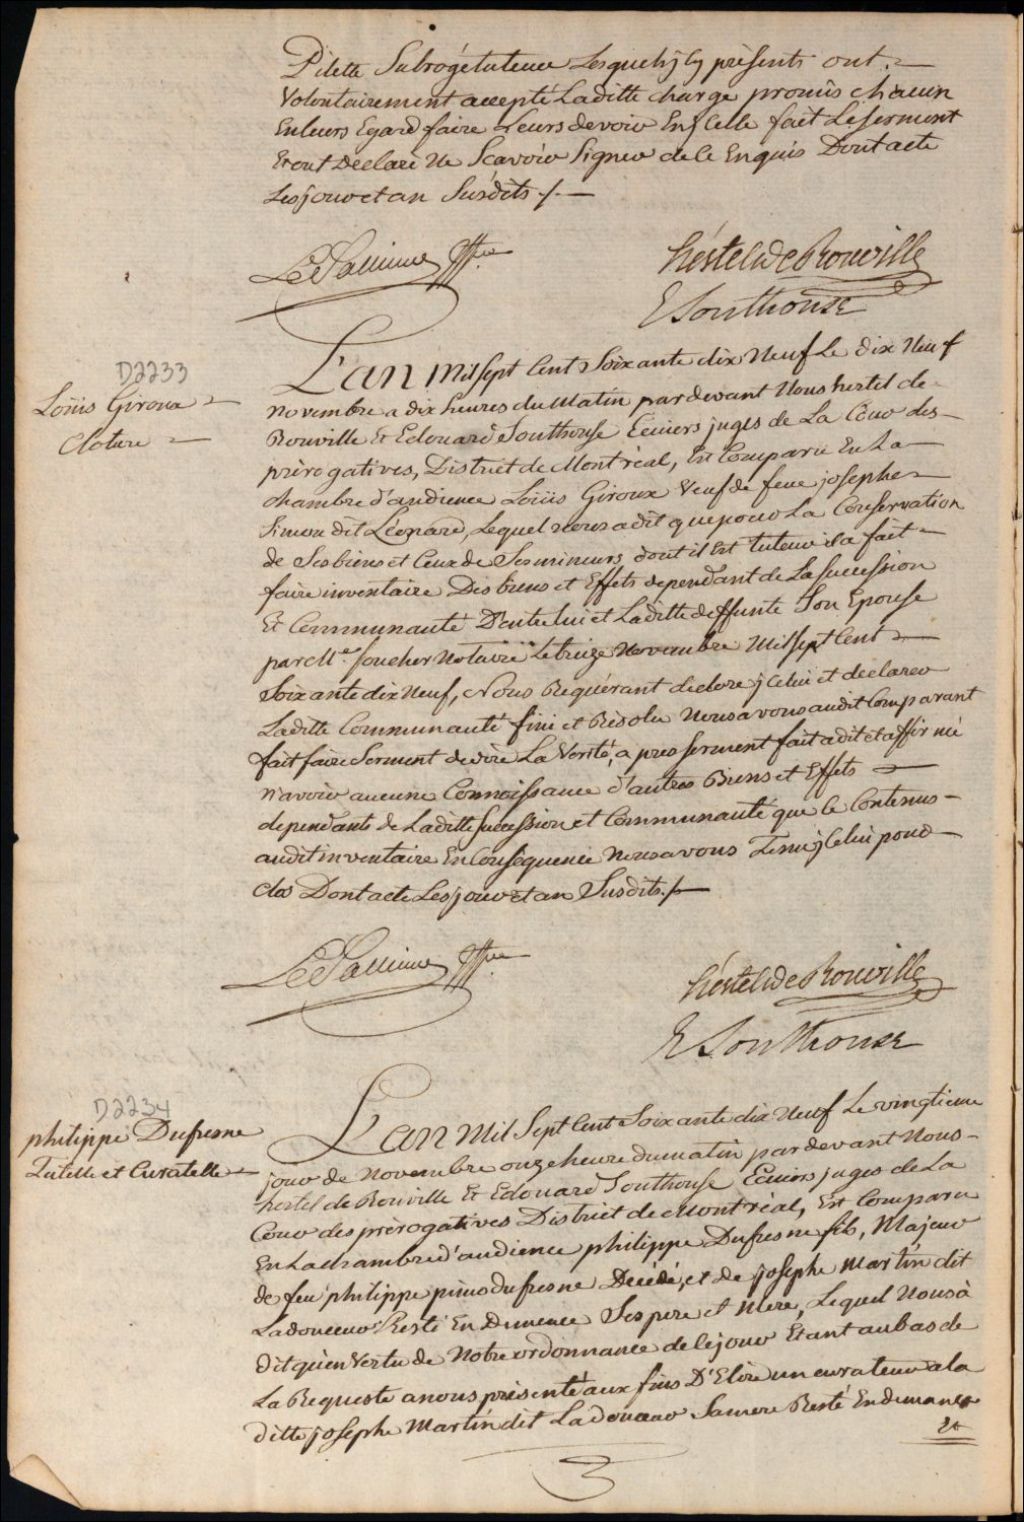 Pilette Subrogé tuteur Lesquels j Cy présents ont
Volontairement accepté Laditte charge promis chacun
En leurs Egard faire Leurs devoir En jcelle fait Le serment
Et ont Declaré Ne Scavoir Signer de Ce Enquis Dont acte
Les jour et an Susdits ./.
LeSaulnier Gffier
hèrtel de Rouville
E Southouse
D2233
Loüis Giroux
Cloture
L'an Mil Sept Cent Soixante dix Neuf Le dix Neuf
Novembre a dix heures du Matin pardevant Nous hertel de
Rouville Et Edouard Southouse Ecuiers juges de La Cour des
prérogatives, District de Montréal, Est Comparu En La
Chambre d'audience Loüis Giroux Veuf de feue josephe
Simon dit Léonard, Lequel nous a dit que pour La Conservation
de Ses biens et Ceux de Ses mineurs dont il Est tuteur il a fait
faire inventaire Des biens et Effets dependant de La succession
Et Communauté D'entre lui et Laditte deffunte Son Epouse
par Me. foucher Notaire Le treize Novembre Mil Sept Cent
Soixante dix Neuf, Nous Requérant de clore j Celui et declarer
Laditte Communauté fini et Résolu Nous avons audit Comparant
fait faire Serment de dire La Verité, a pres serment fait a dit et affirmé
n'avoir aucune Connoissance d'autres Biens et Effets
dependants de Laditte succession et Communauté que le Contenus
audit inventaire En Conséquence Nous avons Tenu j Celui pour
clos Dont acte Les jour et an Susdits ./.
LeSaulnier Gffier
hèrtel de Rouville
E Southouse
D2234
philippe Dufresne
Tutelle et Curatelle
L'an Mil Sept Cent Soixante dix Neuf Le vingtieme
jour de Novembre onze heure du matin par devant Nous
hertel de Rouville Et Edouard Southouse Ecuiers juges de La
Cour des prérogatives District de Montréal, Est Comparu
En La chambre d'audience philippe Dufresne fils, Majeur
de feu philippe dufresne Décédé, et de josephe Martin dit
Ladouceur Resté En Demence Ses pere et Mere, Lequel Nous à
Dit qu'en Vertu de Notre ordonnance de Ce jour Etant au bas de
La Requeste a nous présenté aux fins D'Elire un curateur a la
ditte josephe Martin dit Ladouceur Sa mere Resté En demance
Et